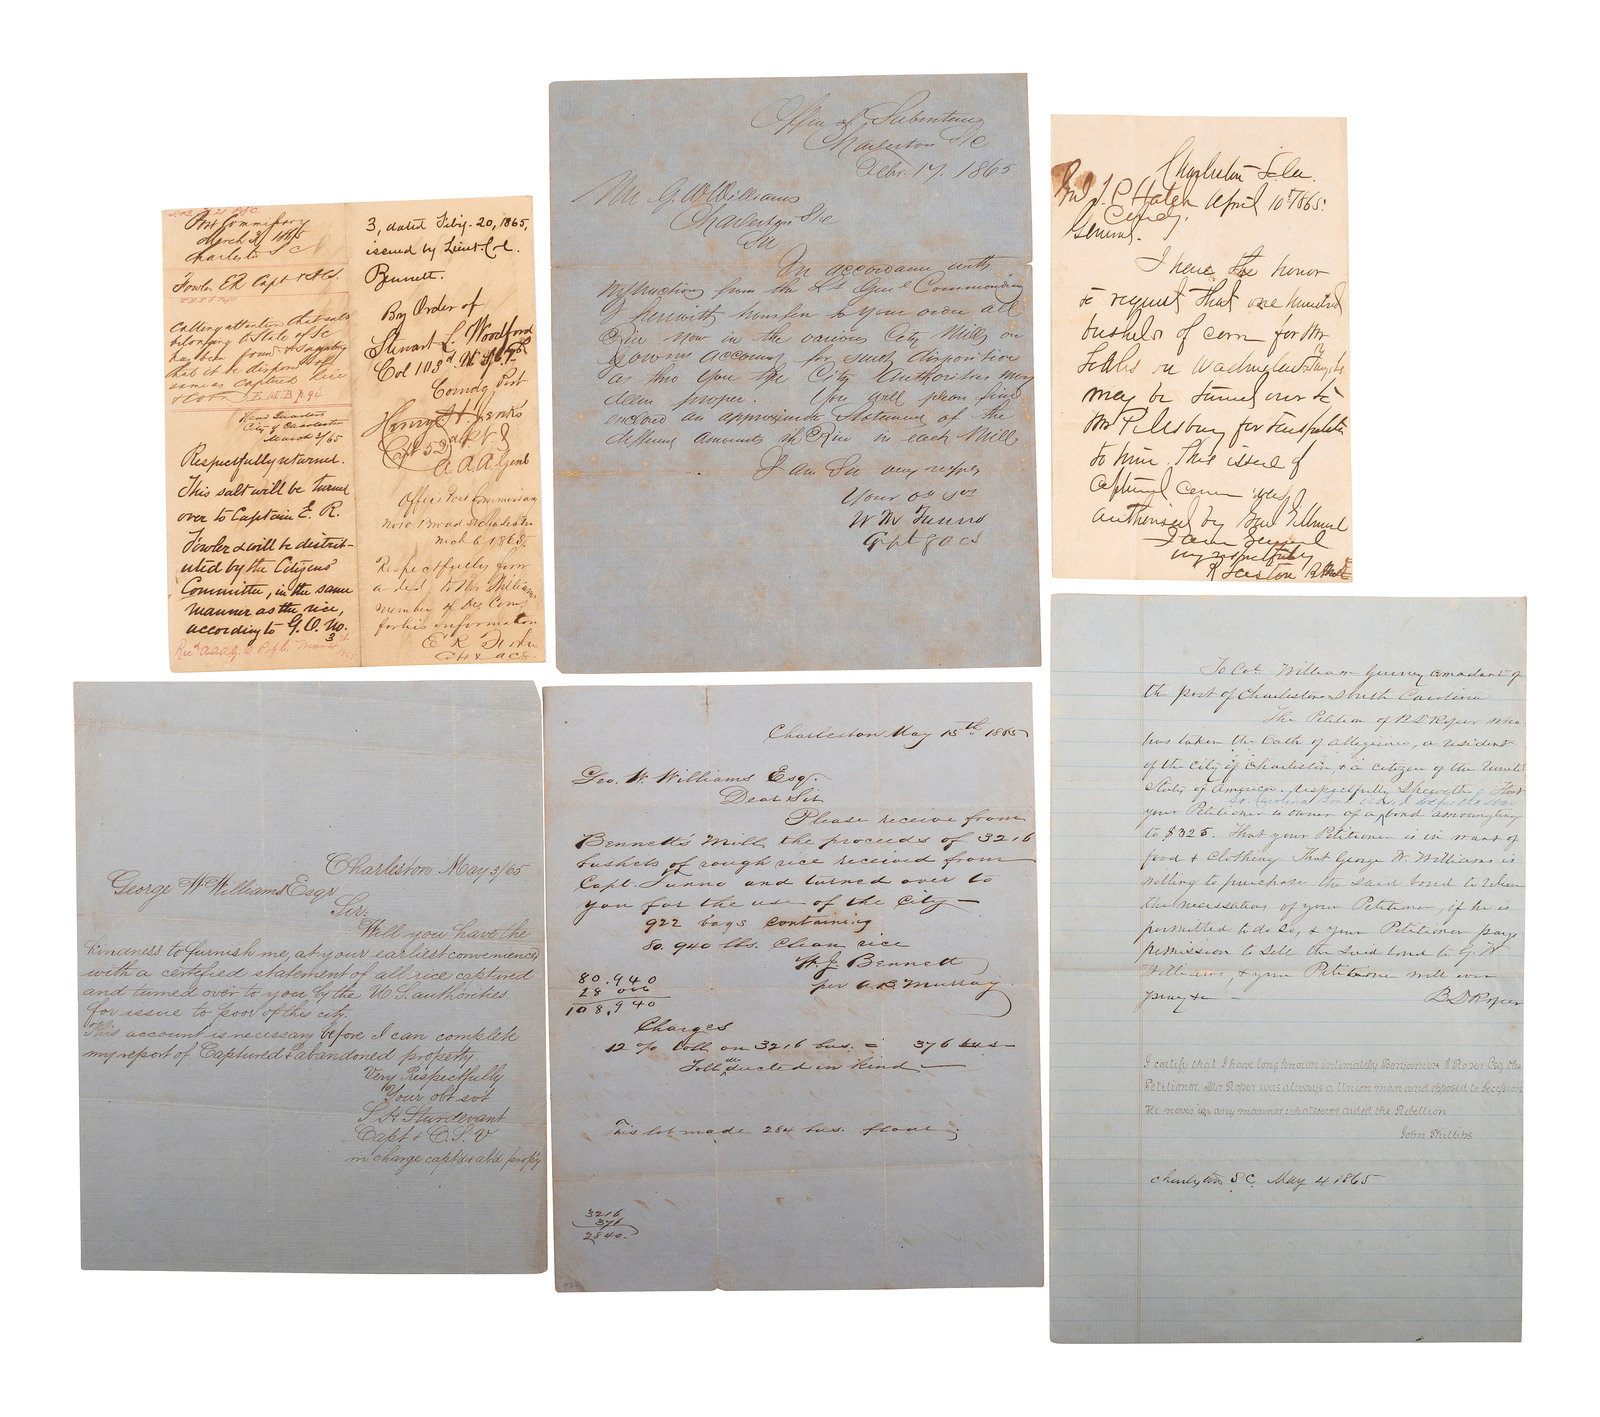 Post Commissary
March 3/1865
Charleston S C
Fowler E R Capt & A C S
Calling attention that salt
belonging to State of S C
has been found &
that it be disposed of
same as captured rice
& corn
Head Quarters
City of Charleston
March 3/65
Respectfully returned.
This salt will be turned
over to Captain E. R.
Fowler & will be distrib-
uted by the Citizens'
Committee, in the same
manner as the rice,
according to G. O. No.
3, dated Feb'y. 20, 1865,
issued by Lieut. Col.
Bennett.
By Order of
Stewart L. Woodford
Col 103d U. S. C. T.
Comdg Post
Henry H. Jenks
Capt 52d Pt.
A. A. A. Genl
Office Post Commissary
Broad St Charleston
Mch 6 1865
Respectfully forw
arded to Mr Williams
member of Com.
for his information
E R Fowler
Capt & A C S
Office of Subsistence
Charleston S/C
Febr. 17. 1865
Mr G. W Williams
Charleston S/c
Sir
In accordance with
instructions from the Lt Genl Commanding
I herewith transfer to your order all
Rice now in the various City Mills on
Govmt account for such disposition
as the City Authorities may
deem proper. You will please find
enclosed an approximate statement of the
different amounts of Rice in each Mill.
I am Sir very respy
Your ob svt
W M Tunno
Capt & a c s
Charleston So Ca
April 10th 1865.
J. P. Hatch
Comdg.
General.
I have the honor
to request that one hundred
bushels of corn for Mr
on Washington St
may be turned over to
Mr Pillsbury for
to him. This issue of
captured corn was
authorised by Gen Gillmore
I am General
very respectfully
Charleston May 3/65
George W Williams Esqr
Sir:
Will you have the
kindness to furnish me, at your earliest convenience
with a certified statement of all rice captured
and turned over to you by the U S. authorities
for issue to poor of this city.
This account is necessary before I can complete
my report of Captured & abandoned property.
Very Respectfully
Your obt svt
S H Sturdevant
Capt & C. S. V
in charge captd & abd. prop'y
Charleston May 15th 1865
Geo. W. Williams Esq.
Dear Sir
Please receive from
Bennett's Mill the proceeds of 3216
bushels of rough rice received from
Capt. Tunno and turned over to
you for the use of the City—
922 bags containing
80.940 lbs. Clean rice
W J Bennett
per A. B. Murray
80.940
28 000
108,940
Charges
12 % toll on 3216 bus. = 376 bus—
Toll deducted in kind.—
This lot made 284 bus. flour
3216
376
2840.
To Col William Gurney comadant of
the post of Charleston South Carolina
The Petition of B D Roper who
has taken the Oath of allegience, a resident
of the City of Charleston, & a citizen of the United
States of America. respectfully Sheweth That
your Petitioner is owner of a bond amounting
to $325. That your Petitioner is in want of
food & Clothing. That George W. Williams is
willing to purchase the said bond to relieve
the necessities of your Petitioner, if he is
permitted to do so, & your Petitioner prays
permission to sell the said bond to G. W
Williams, & your Petitioner will ever
pray &c —
B D Roper
I certify that I have long known intimately Benjamin D Roper Esq the
Petitioner. Mr Roper was always a Union man and opposed to Secession
He never in any manner whatsoever aided the Rebellion
John Phillips
Charleston S C. May 4 1865